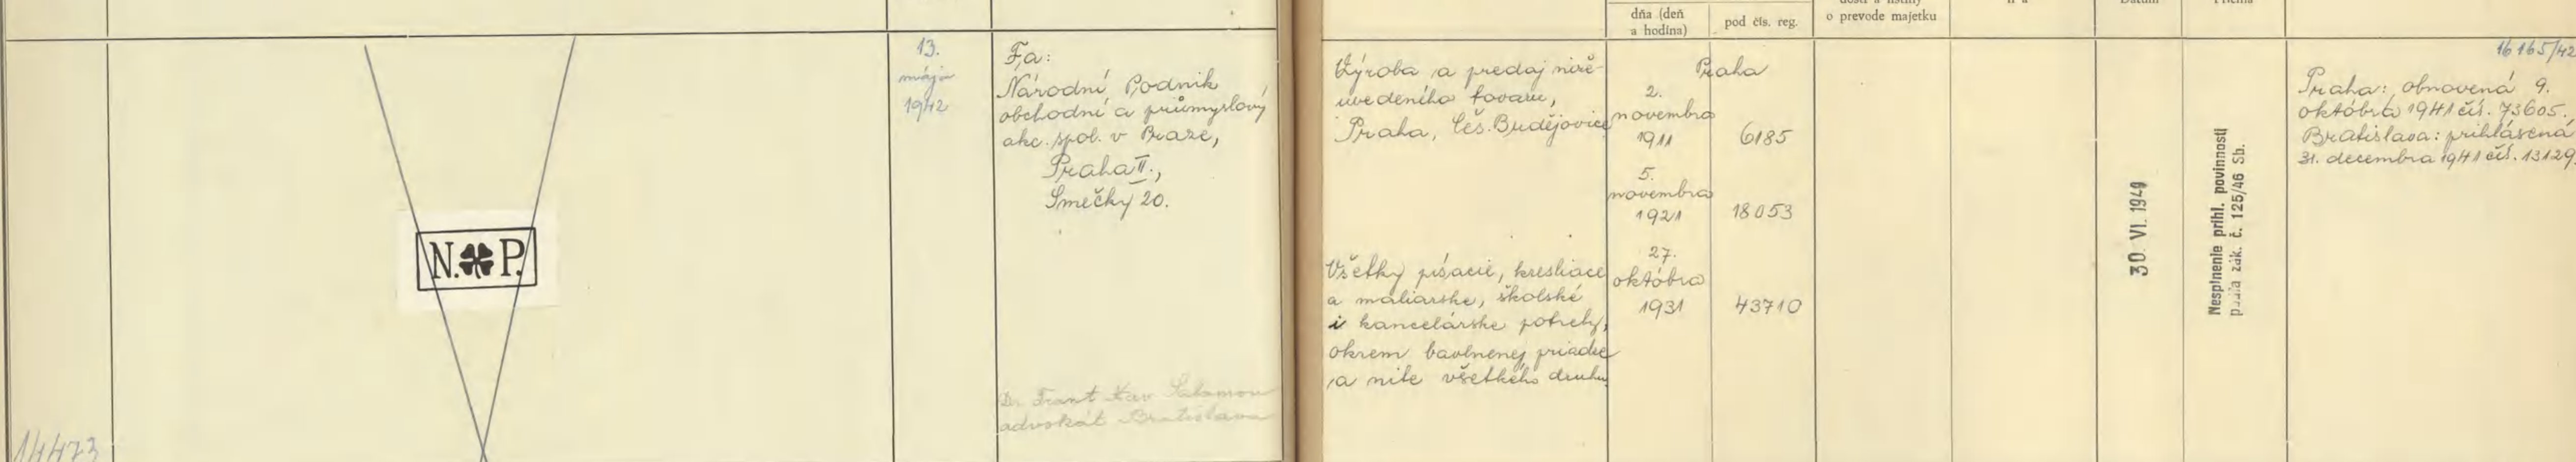 dňa (deň
a hodina)
pod čís. reg.
o prevode majetku
14473
N. P.
13.
mája
1942
Fa:
Národní Podnik
obchodní a průmyslový
akc. spol. v Praze,
Praha II.,
Smečky 20.
Dr. Frant. Xav.
advokát Bratislava
Výroba a predaj niže-
uvedeného tovaru,
Praha, Čes. Budějovice
Všetky písacie, kresliace
a maliarske, školské
i kancelárske potreby,
okrem bavlnenej priadze
a nite všetkého druhu.
Praha
2.
novembra
1911
6185
5.
novembra
1921
18053
27.
októbra
1931
43710
30. VI. 1949
Nesplnenie prihl. povinnosti
podľa zák. č. 125/46 Sb.
16165/42
Praha: obnovená 9.
októbra 1941 čís. 73605.
Bratislava: prihlásená
31. decembra 1941 čís. 13129.